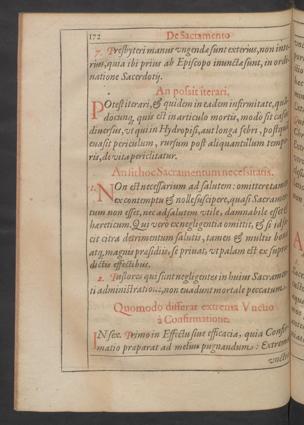 172
De Sacramento
7. Presbyteri manus vngendæ sunt exterius, non inte-
rius, quia ibi prius ab Episcopo inunctæ sunt, in ordi-
natione Sacerdotij.
An possit iterari.
POtest iterari, & quidem in eadem infirmitate, quā-
docunq, quis est in articulo mortis, modo sit casus
diuersus, vt qui in Hydropisi, aut longa febri, postquā
euasit periculum, rursum post aliquantillum tempo-
ris, de vita periclitatur.
An sit hoc Sacramentum necessitatis.
1. NOn est necessarium ad salutem: omittere tamen
ex contemptu & nolle suscipere, quasi Sacramen-
tum non esset, nec ad salutem vtile, damnabile esset &
hæreticum. Qui vero ex negligentia omittit, & si id fa-
cit citra detrimentum salutis, tamen & multis bonis
atq, magnis præsidiis, se priuat, vt palam est ex supra
dictis effectibus.
2. Pastores qui sunt negligentes in huius Sacramen-
ti administratione, non euadunt mortale peccatum.
Quomodo differat extrema Vnctio
à Confirmatione.
IN sex. Primo in Effectu siue efficacia, quia Confir-
matio præparat ad melius pugnandum: Extrema
vnctio